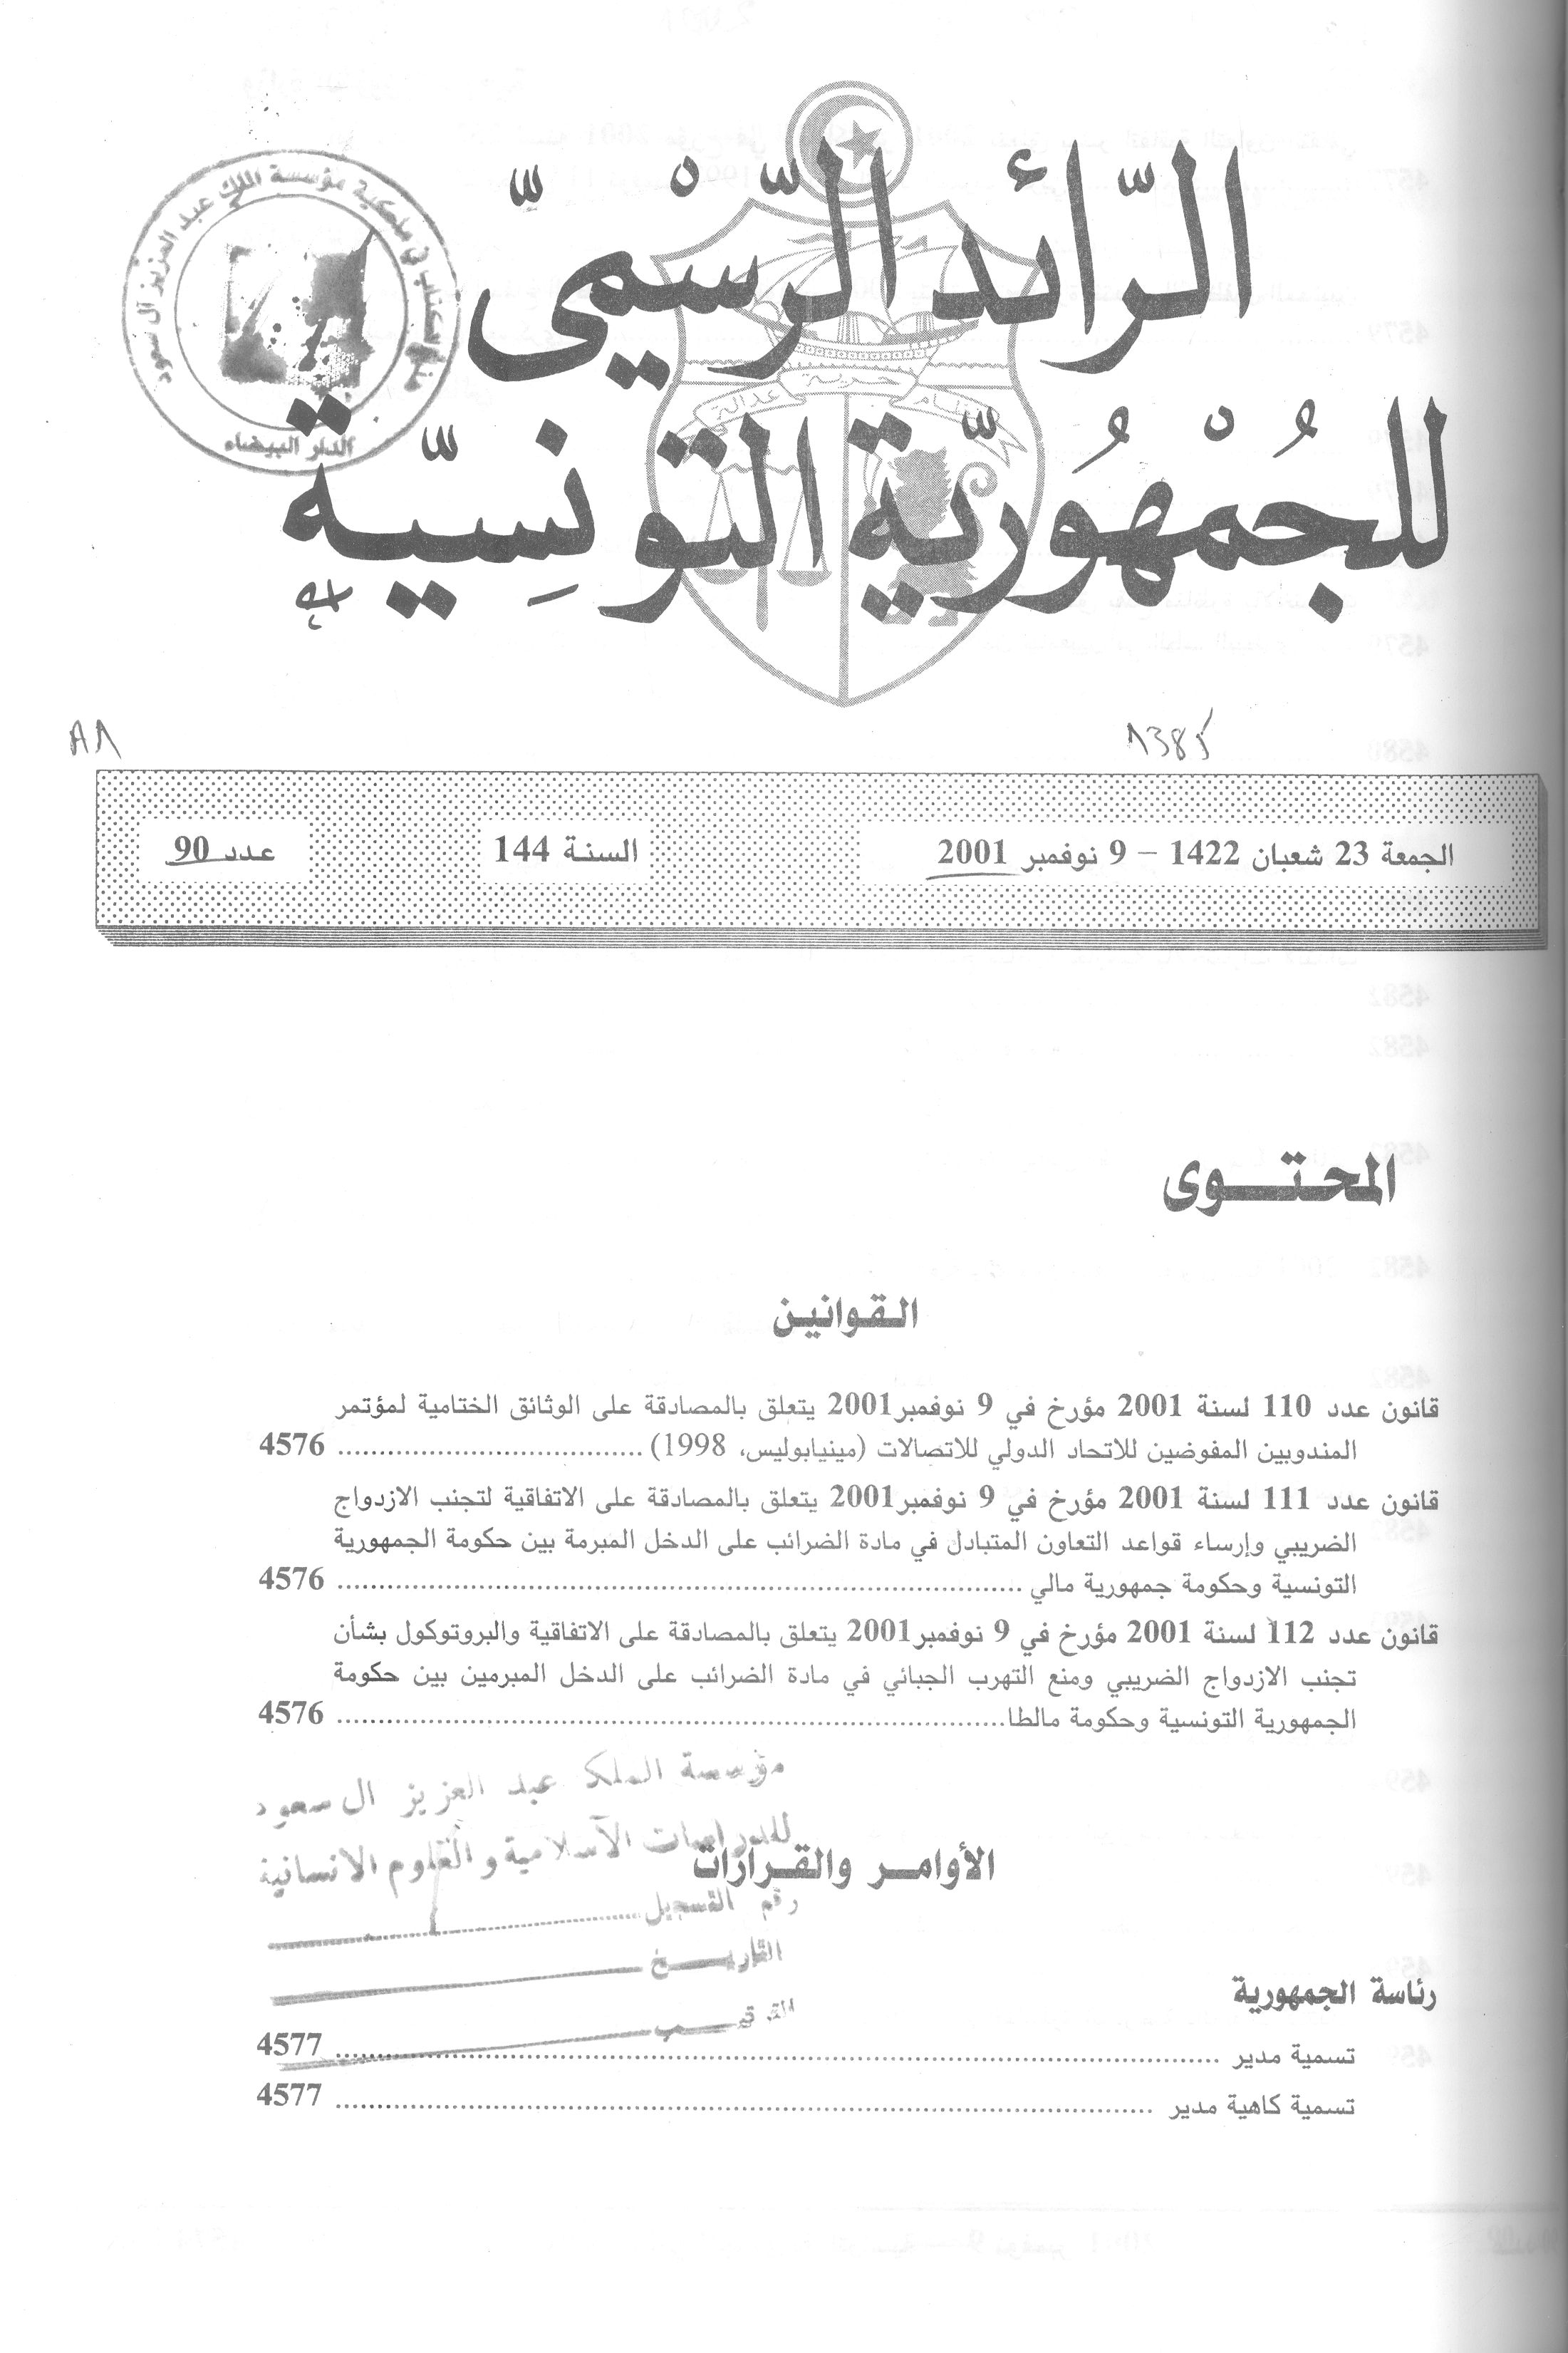 الرّائد الرّسْميّ
للجُمْهُوريّة التونِسيّة
نظام حرية عدالة
هذا الكتاب في ملكية مؤسسة الملك عبد العزيز آل سعود
الدار البيضاء
A1
1385
الجمعة 23 شعبان 1422 – 9 نوفمبر 2001
السنة 144
عدد 90
المحتوى
القوانين
قانون عدد 110 لسنة 2001 مؤرخ في 9 نوفمبر2001 يتعلق بالمصادقة على الوثائق الختامية لمؤتمر
المندوبين المفوضين للاتحاد الدولي للاتصالات (مينيابوليس، 1998) ........ 4576
قانون عدد 111 لسنة 2001 مؤرخ في 9 نوفمبر2001 يتعلق بالمصادقة على الاتفاقية لتجنب الازدواج
الضريبي وإرساء قواعد التعاون المتبادل في مادة الضرائب على الدخل المبرمة بين حكومة الجمهورية
التونسية وحكومة جمهورية مالي ........ 4576
قانون عدد 112 لسنة 2001 مؤرخ في 9 نوفمبر2001 يتعلق بالمصادقة على الاتفاقية والبروتوكول بشأن
تجنب الازدواج الضريبي ومنع التهرب الجبائي في مادة الضرائب على الدخل المبرمين بين حكومة
الجمهورية التونسية وحكومة مالطا........ 4576
مؤسسة الملك عبد العزيز ال سعود
للدراسات الآسلامية والعلوم الانسانية
الأوامر والقرارات
رقم التسجيل
التاريخ
رئاسة الجمهورية
تسمية مدير ........ 4577
تسمية كاهية مدير ........ 4577